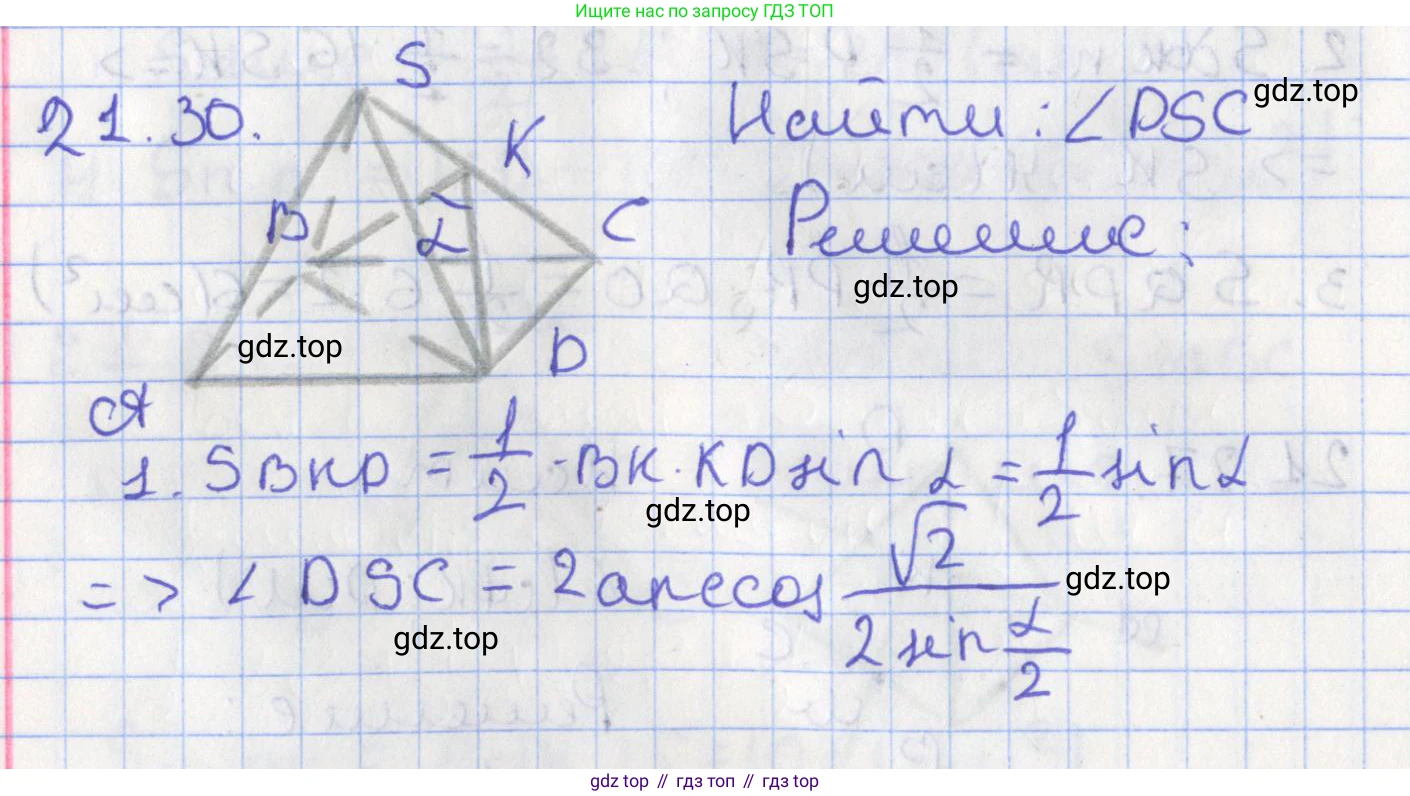 Ищите нас по запросу ГДЗ ТОП
21.30.
S
K
B
C
α
D
A
Найти: ∠DSC
gdz.top
Решение:
gdz.top
gdz.top
1. SBKD = 1/2 · BK · KD sin α = 1/2 sin α
gdz.top
=> ∠DSC = 2 arccos √2 / (2 sin α/2)
gdz.top
gdz.top
gdz top // гдз топ // гдз top